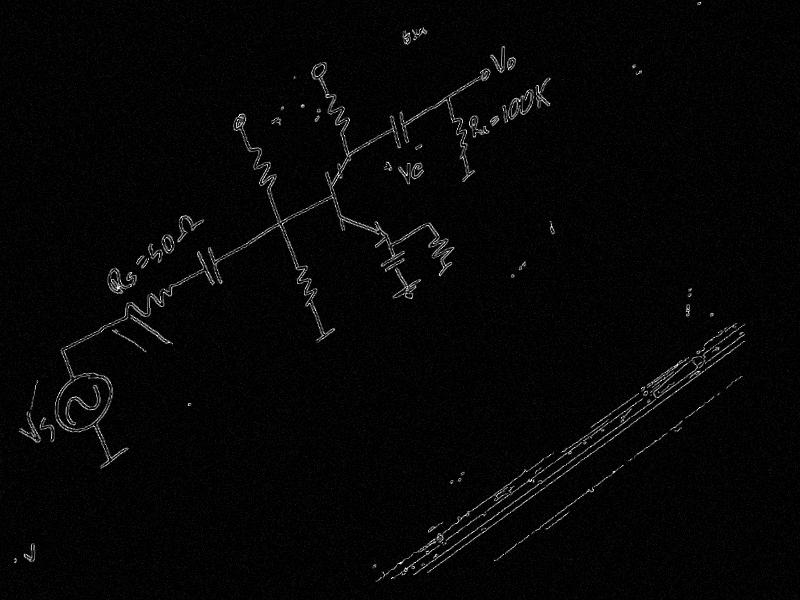 Vo
RL=100K
Vc
Rs=50Ω
Vs